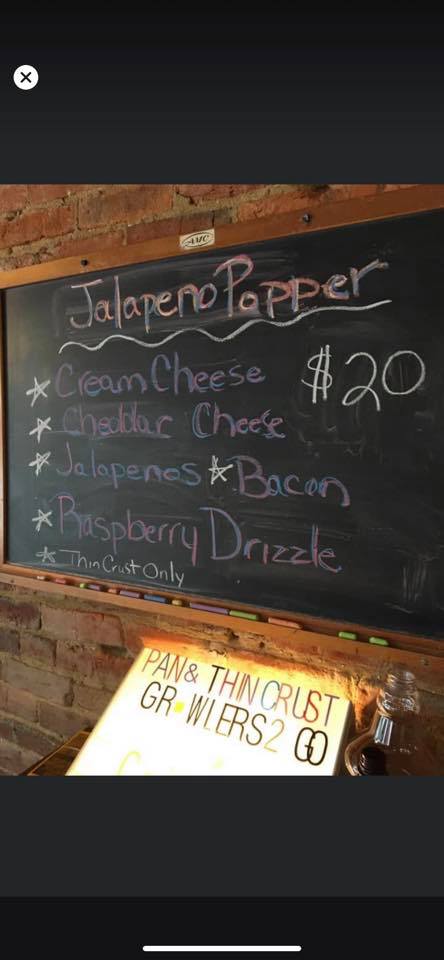 AMC
Jalapeno Popper
$20
* Cream Cheese
* Cheddar Cheese
* Jalapenos * Bacon
* Raspberry Drizzle
* Thin Crust Only
PAN & THIN CRUST
GR●WLERS 2 GO